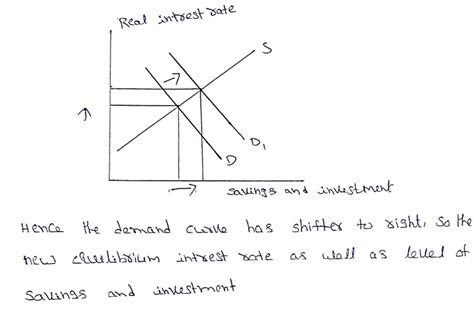 Real intrest rate
S
D1
D
savings and investment
Hence the demand curve has shifter to right, so the
new equilibrium intrest rate as well as level of
savings and investment